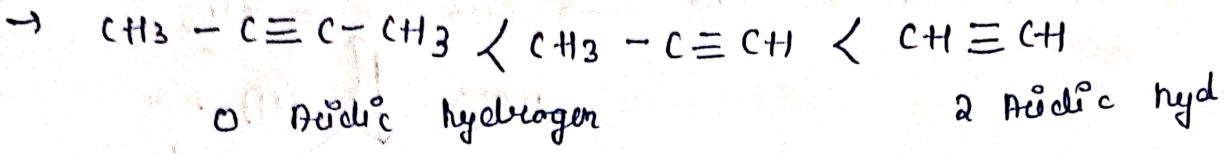 → CH3 - C ≡ C - CH3 < CH3 - C ≡ CH < CH ≡ CH
0 Acidic hydrogen 2 Acidic hyd